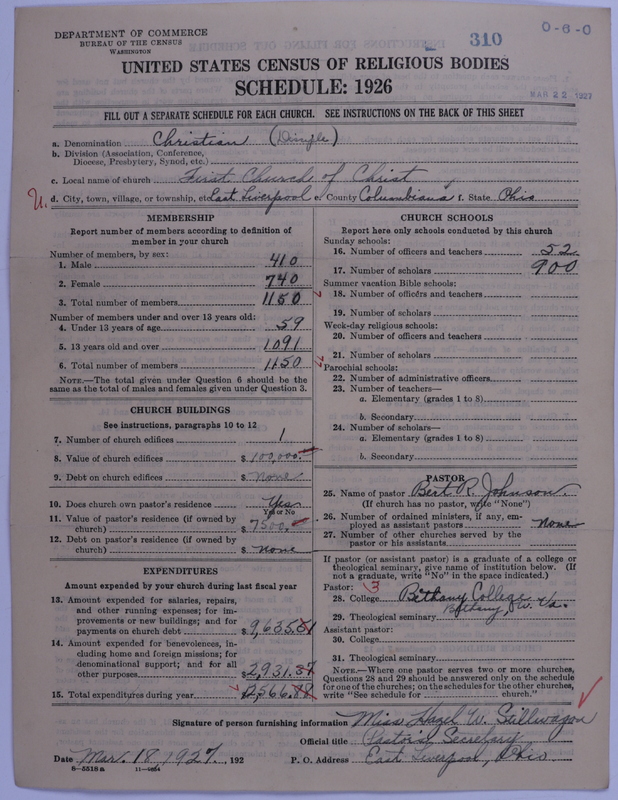 DEPARTMENT OF COMMERCE
BUREAU OF THE CENSUS
WASHINGTON
310
O-6-0
MAR 22 1927
UNITED STATES CENSUS OF RELIGIOUS BODIES
SCHEDULE: 1926
FILL OUT A SEPARATE SCHEDULE FOR EACH CHURCH. SEE INSTRUCTIONS ON THE BACK OF THIS SHEET
a. Denomination Christian (Disciple)
b. Division (Association, Conference,
Diocese, Presbytery, Synod, etc.)
c. Local name of church First Church of Christ
U. d. City, town, village, or township, etc. East Liverpool e. County Columbiana f. State Ohio
MEMBERSHIP
Report number of members according to definition of
member in your church
Number of members, by sex:
1. Male 410
2. Female 740
3. Total number of members 1150
Number of members under and over 13 years old:
4. Under 13 years of age 59
5. 13 years old and over 1091
6. Total number of members 1150
NOTE.—The total given under Question 6 should be the
same as the total of males and females given under Question 3.
CHURCH BUILDINGS
See instructions, paragraphs 10 to 12
7. Number of church edifices 1
8. Value of church edifices $100,000.
9. Debt on church edifices $ none
10. Does church own pastor's residence Yes
Yes or No
11. Value of pastor's residence (if owned by
church) $7500.
12. Debt on pastor's residence (if owned by
church) $ none
EXPENDITURES
Amount expended by your church during last fiscal year
13. Amount expended for salaries, repairs,
and other running expenses; for im-
provements or new buildings; and for
payments on church debt $9,635.51
14. Amount expended for benevolences, in-
cluding home and foreign missions; for
denominational support; and for all
other purposes $2,931.37
15. Total expenditures during year $12,566.88
CHURCH SCHOOLS
Report here only schools conducted by this church
Sunday schools:
16. Number of officers and teachers 52
17. Number of scholars 900
Summer vacation Bible schools:
18. Number of officers and teachers
19. Number of scholars
Week-day religious schools:
20. Number of officers and teachers
21. Number of scholars
Parochial schools:
22. Number of administrative officers
23. Number of teachers—
a. Elementary (grades 1 to 8)
b. Secondary
24. Number of scholars—
a. Elementary (grades 1 to 8)
b. Secondary
PASTOR
25. Name of pastor Bert R. Johnson.
(If church has no pastor, write "None")
26. Number of ordained ministers, if any, em-
ployed as assistant pastors none
27. Number of other churches served by the
pastor or his assistants
If pastor (or assistant pastor) is a graduate of a college or
theological seminary, give name of institution below. (If
not a graduate, write "No" in the space indicated.)
Pastor: 13
28. College Bethany College
Bethany, W. Va.
29. Theological seminary
Assistant pastor:
30. College
31. Theological seminary
NOTE.—Where one pastor serves two or more churches,
Questions 28 and 29 should be answered only on the schedule
for one of the churches; on the schedules for the other churches,
write "See schedule for church."
Signature of person furnishing information Miss Hazel W. Stillwagon
Official title Pastor's Secretary
Date Mar. 18, 1927, 192 P. O. Address East Liverpool, Ohio
8-5518a 11-9084